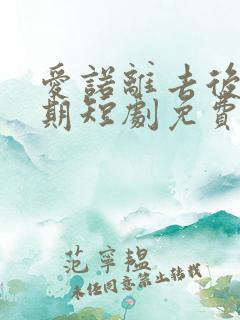 愛諾離去後
期短劇免費
范寧韞
未经同意禁止转载